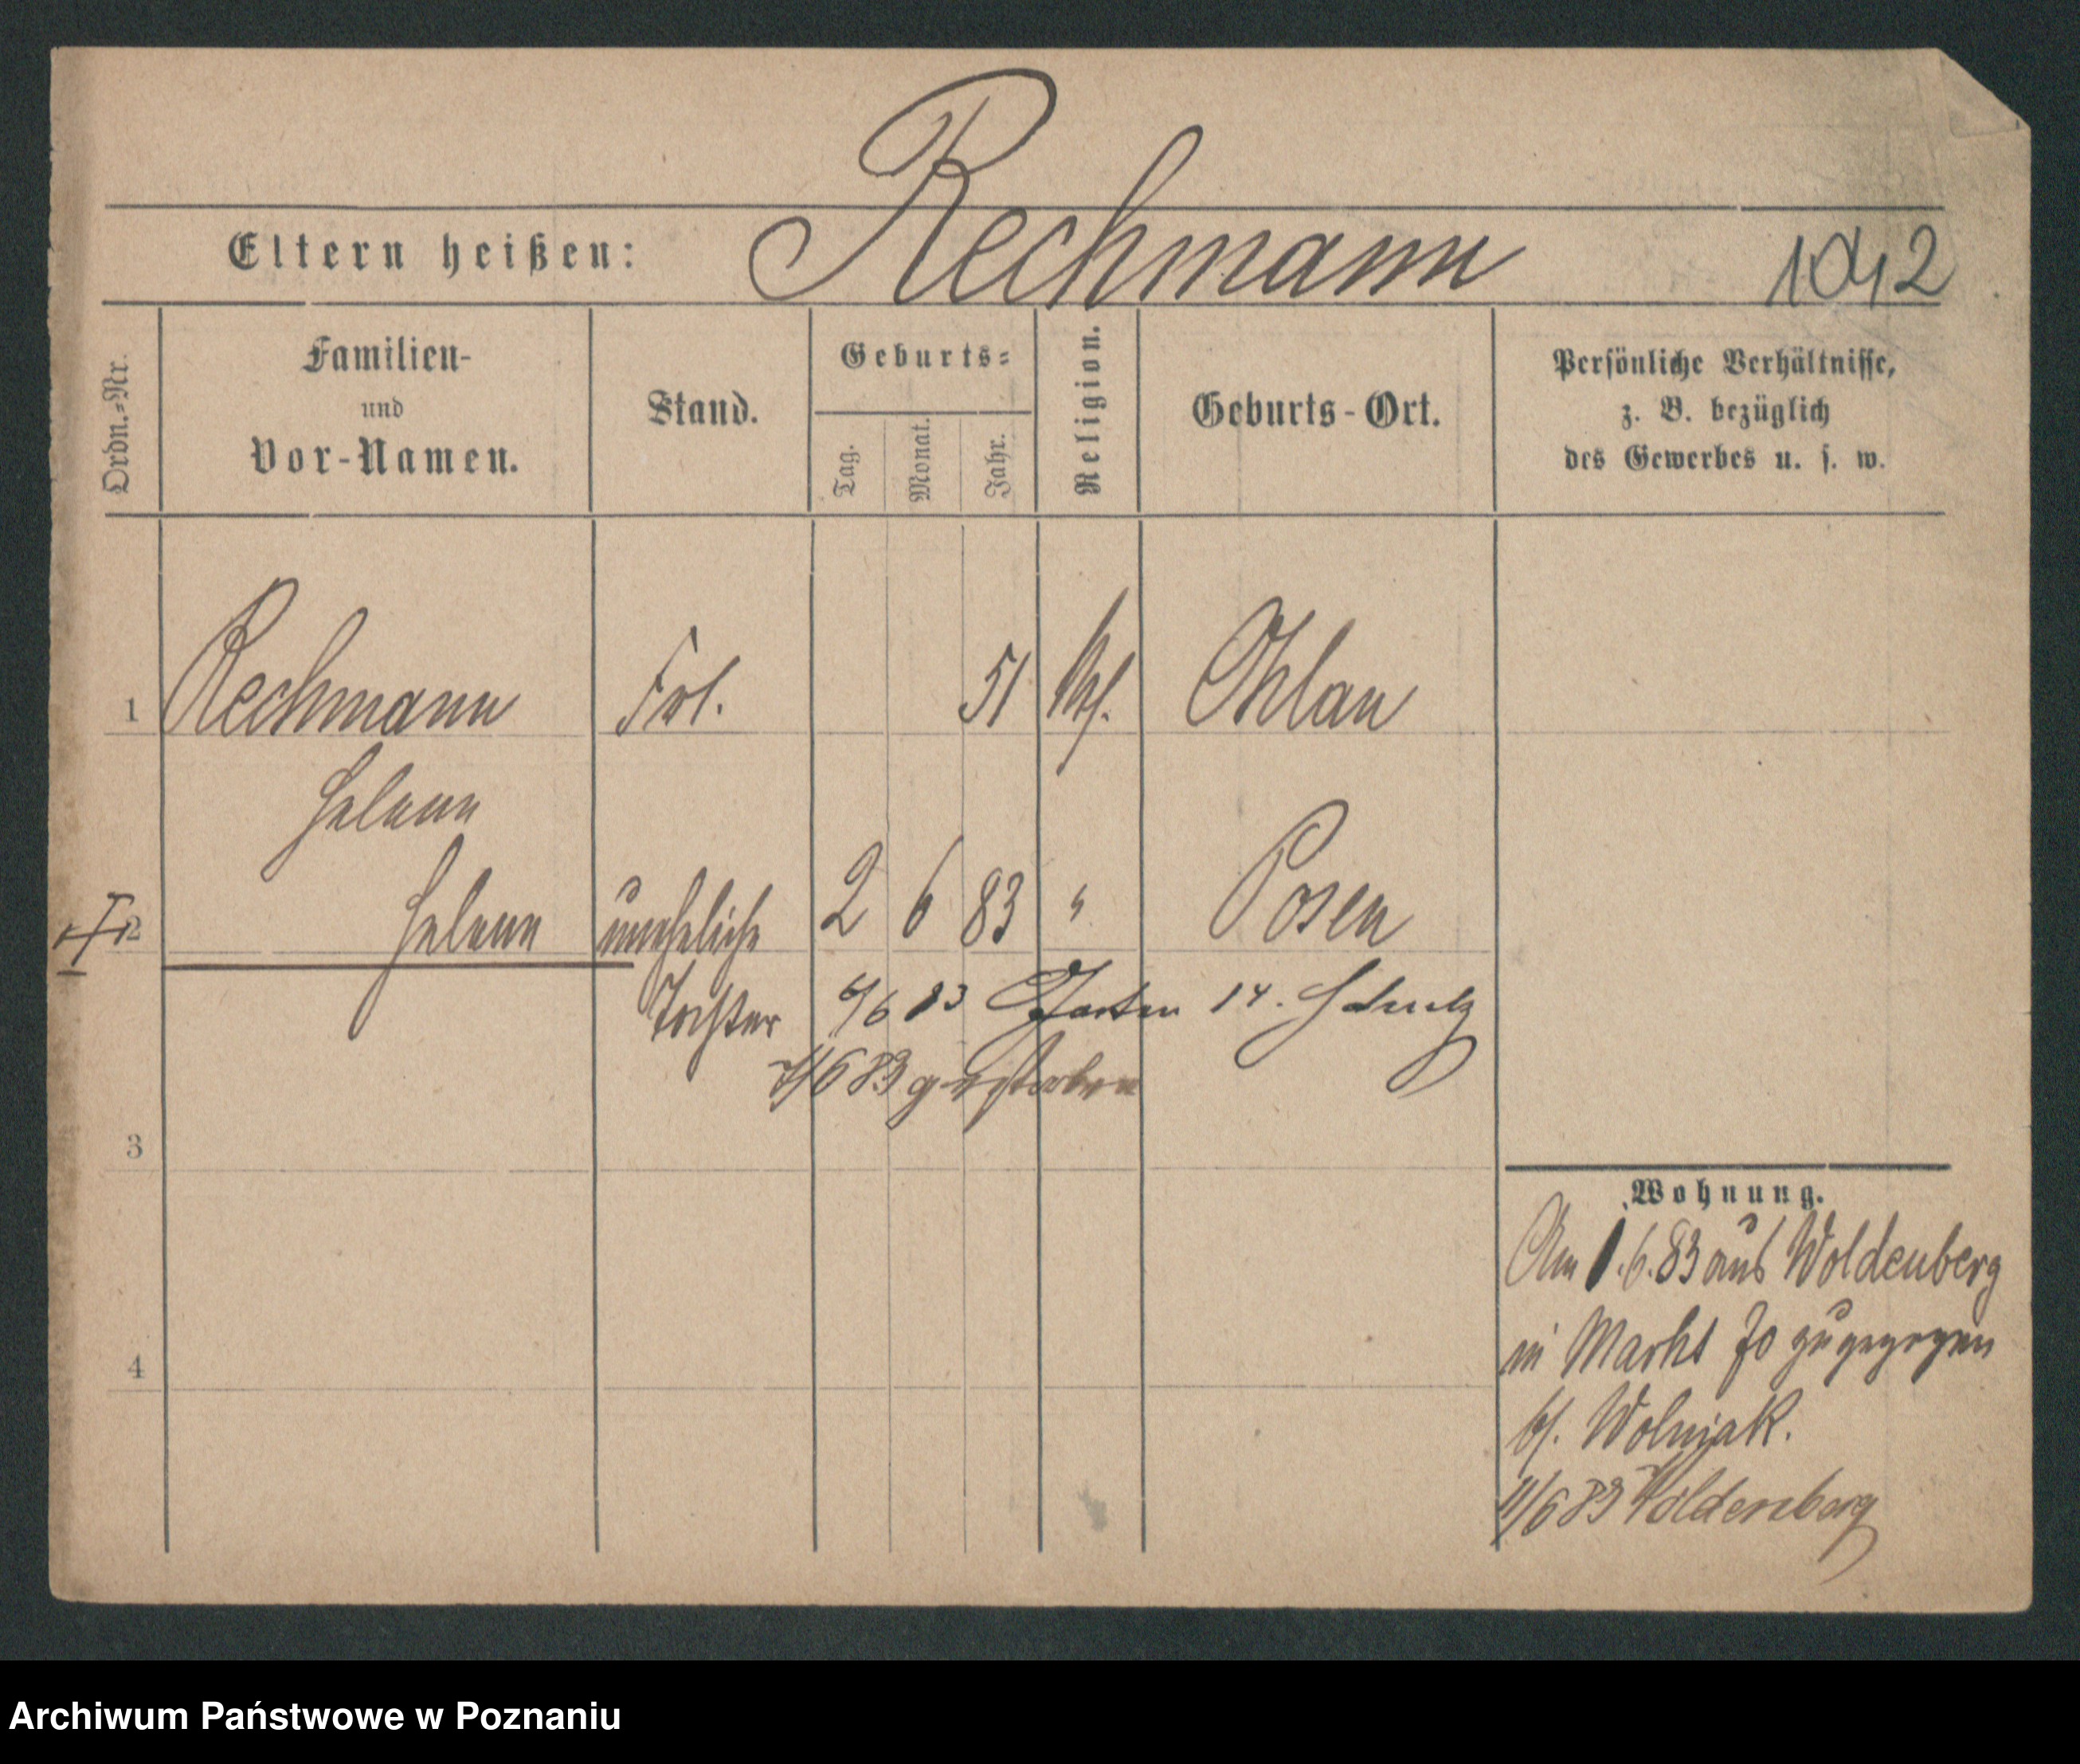 Rechmann
Eltern heißen:
1042
Ordn.-Nr.
Familien-
und
Vor-Namen.
Stand.
Geburts-
Tag.
Monat.
Jahr.
Religion.
Geburts-Ort.
Persönliche Verhältnisse,
z. B. bezüglich
des Gewerbes u. s. w.
1 Rechmann Frl. 51 Ohlau
Helene
2 Helene uneheliche 2 6 83 " Posen
Tochter 4/6 83 Garten 14. Schulz
7/6 83 gestorben
3
4
Wohnung.
Am 1.6.83 aus Woldenberg
in Markt 70 zugezogen
bei Wolniak.
11/6 83 Woldenberg
Archiwum Państwowe w Poznaniu